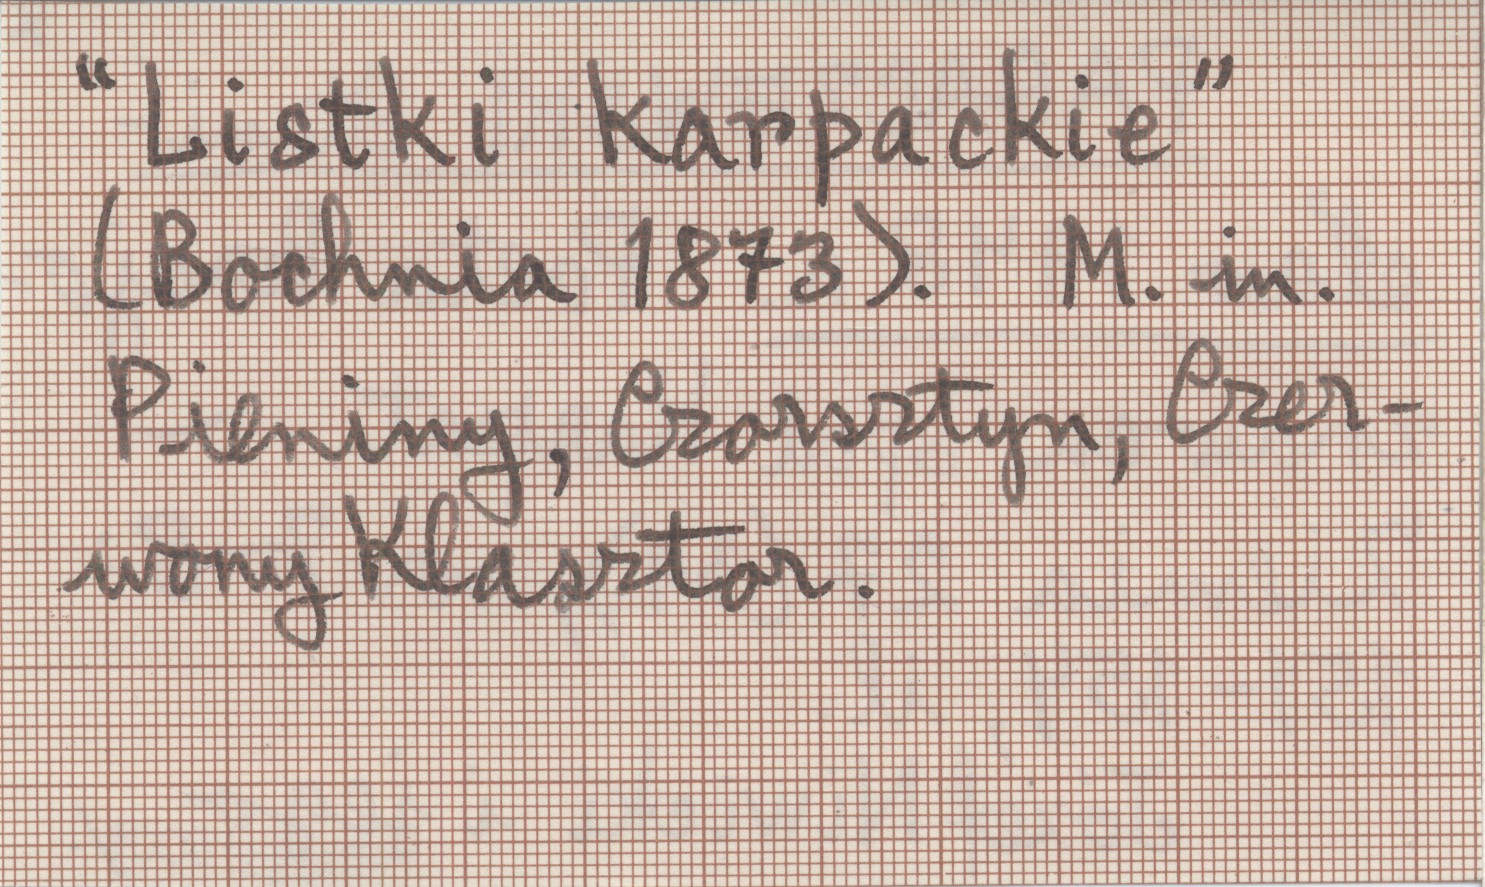 “Listki karpackie”
(Bochnia 1873). M. in.
Pieniny, Czorsztyn, Czer-
wony Klasztor.